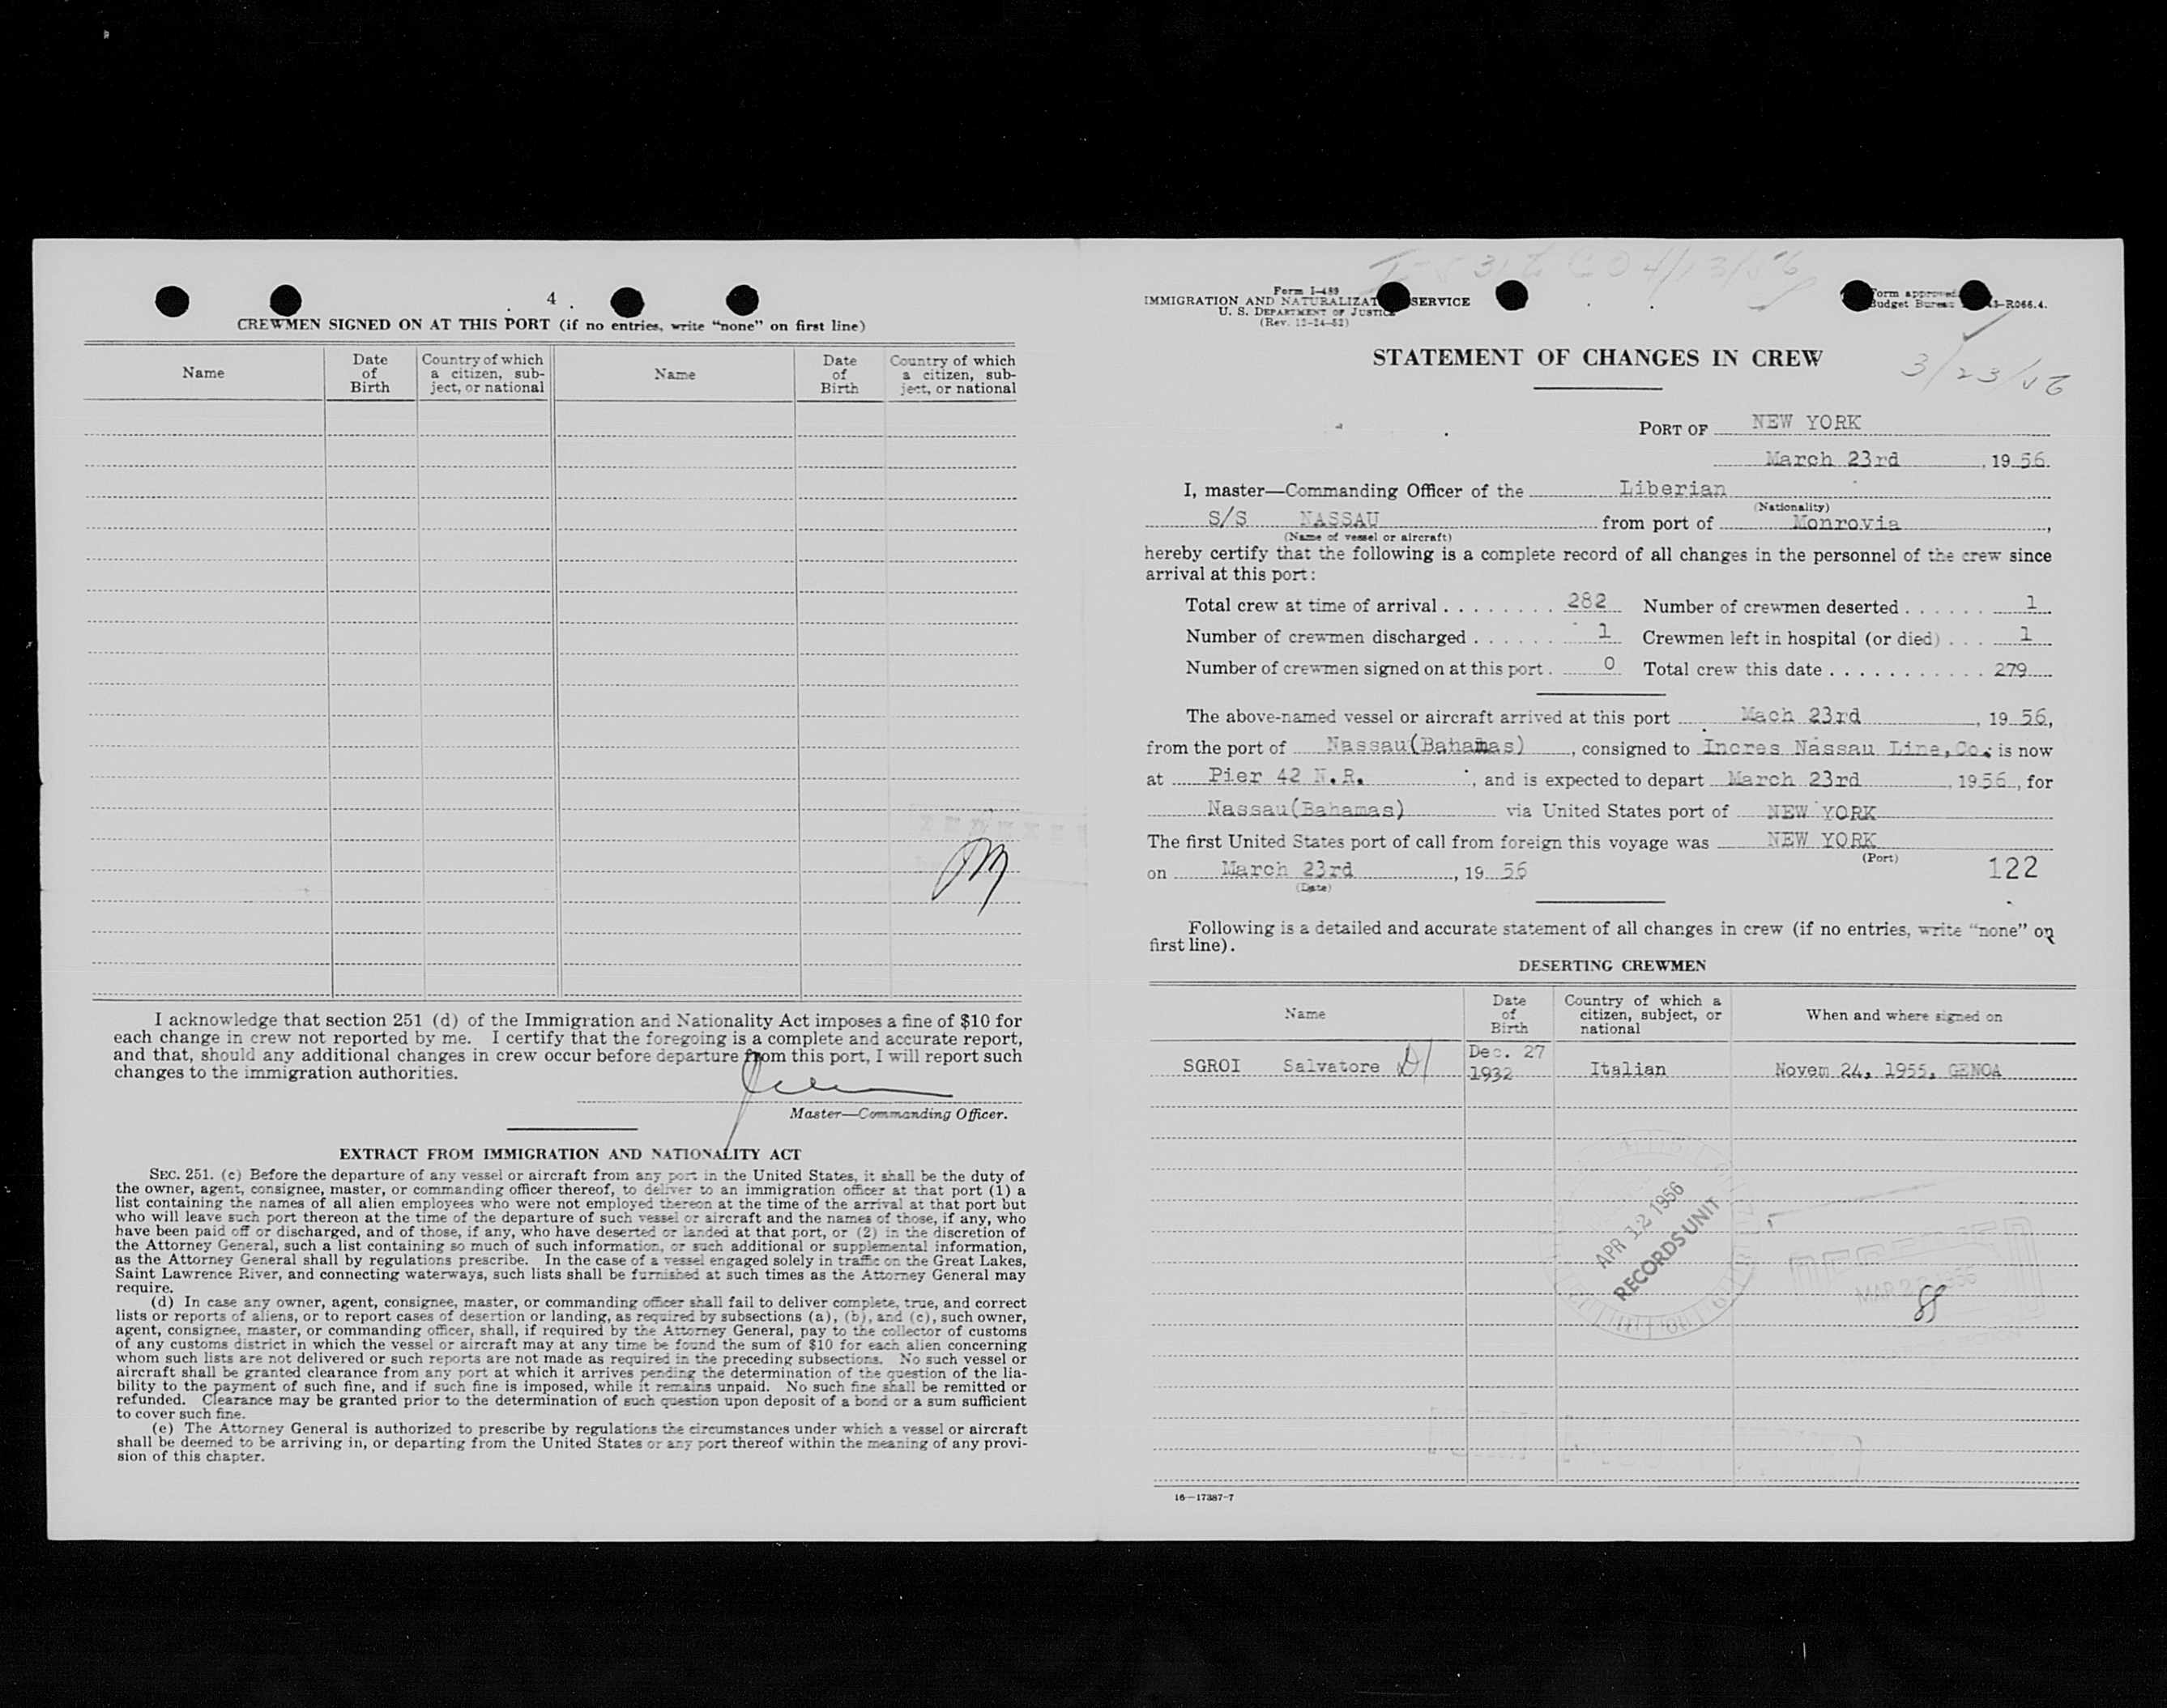 4
CREWMEN SIGNED ON AT THIS PORT (if no entries, write “none” on first line)
Name
Date of Birth
Country of which a citizen, sub-ject, or national
Name
Date of Birth
Country of which a citizen, sub-ject, or national
I acknowledge that section 251 (d) of the Immigration and Nationality Act imposes a fine of $10 for
each change in crew not reported by me. I certify that the foregoing is a complete and accurate report,
and that, should any additional changes in crew occur before departure from this port, I will report such
changes to the immigration authorities.
Master—Commanding Officer.
EXTRACT FROM IMMIGRATION AND NATIONALITY ACT
SEC. 251. (c) Before the departure of any vessel or aircraft from any port in the United States, it shall be the duty of
the owner, agent, consignee, master, or commanding officer thereof, to deliver to an immigration officer at that port (1) a
list containing the names of all alien employees who were not employed thereon at the time of the arrival at that port but
who will leave such port thereon at the time of the departure of such vessel or aircraft and the names of those, if any, who
have been paid off or discharged, and of those, if any, who have deserted or landed at that port, or (2) in the discretion of
the Attorney General, such a list containing so much of such information, or such additional or supplemental information,
as the Attorney General shall by regulations prescribe. In the case of a vessel engaged solely in traffic on the Great Lakes,
Saint Lawrence River, and connecting waterways, such lists shall be furnished at such times as the Attorney General may
require.
(d) In case any owner, agent, consignee, master, or commanding officer shall fail to deliver complete, true, and correct
lists or reports of aliens, or to report cases of desertion or landing, as required by subsections (a), (b), and (c), such owner,
agent, consignee, master, or commanding officer, shall, if required by the Attorney General, pay to the collector of customs
of any customs district in which the vessel or aircraft may at any time be found the sum of $10 for each alien concerning
whom such lists are not delivered or such reports are not made as required in the preceding subsections. No such vessel or
aircraft shall be granted clearance from any port at which it arrives pending the determination of the question of the lia-
bility to the payment of such fine, and if such fine is imposed, while it remains unpaid. No such fine shall be remitted or
refunded. Clearance may be granted prior to the determination of such question upon deposit of a bond or a sum sufficient
to cover such fine.
(e) The Attorney General is authorized to prescribe by regulations the circumstances under which a vessel or aircraft
shall be deemed to be arriving in, or departing from the United States or any port thereof within the meaning of any provi-
sion of this chapter.
Form I-489
IMMIGRATION AND NATURALIZAT SERVICE
U. S. DEPARTMENT OF JUSTICE
(Rev. 12-24-52)
Form approved
Budget Bureau R066.4.
STATEMENT OF CHANGES IN CREW
3/23/56
PORT OF NEW YORK
March 23rd, 1956.
I, master—Commanding Officer of the Liberian
(Nationality)
S/S NASSAU from port of Monrovia,
(Name of vessel or aircraft)
hereby certify that the following is a complete record of all changes in the personnel of the crew since
arrival at this port:
Total crew at time of arrival . . . . . . . . 282 Number of crewmen deserted . . . . . . 1
Number of crewmen discharged . . . . . . 1 Crewmen left in hospital (or died) . . . 1
Number of crewmen signed on at this port . 0 Total crew this date . . . . . . . . . . . 279
The above-named vessel or aircraft arrived at this port Mach 23rd, 1956,
from the port of Nassau(Bahamas), consigned to Incres Nassau Line,Co. is now
at Pier 42 N.R., and is expected to depart March 23rd, 1956, for
Nassau(Bahamas) via United States port of NEW YORK
The first United States port of call from foreign this voyage was NEW YORK
(Port)
on March 23rd, 1956
(Date)
122
Following is a detailed and accurate statement of all changes in crew (if no entries, write “none” on
first line).
DESERTING CREWMEN
Name
Date of Birth
Country of which a citizen, subject, or national
When and where signed on
SGROI Salvatore Dec. 27 1932 Italian Novem 24, 1955, GENOA
APR 12 1956
RECORDS UNIT
16—17387-7